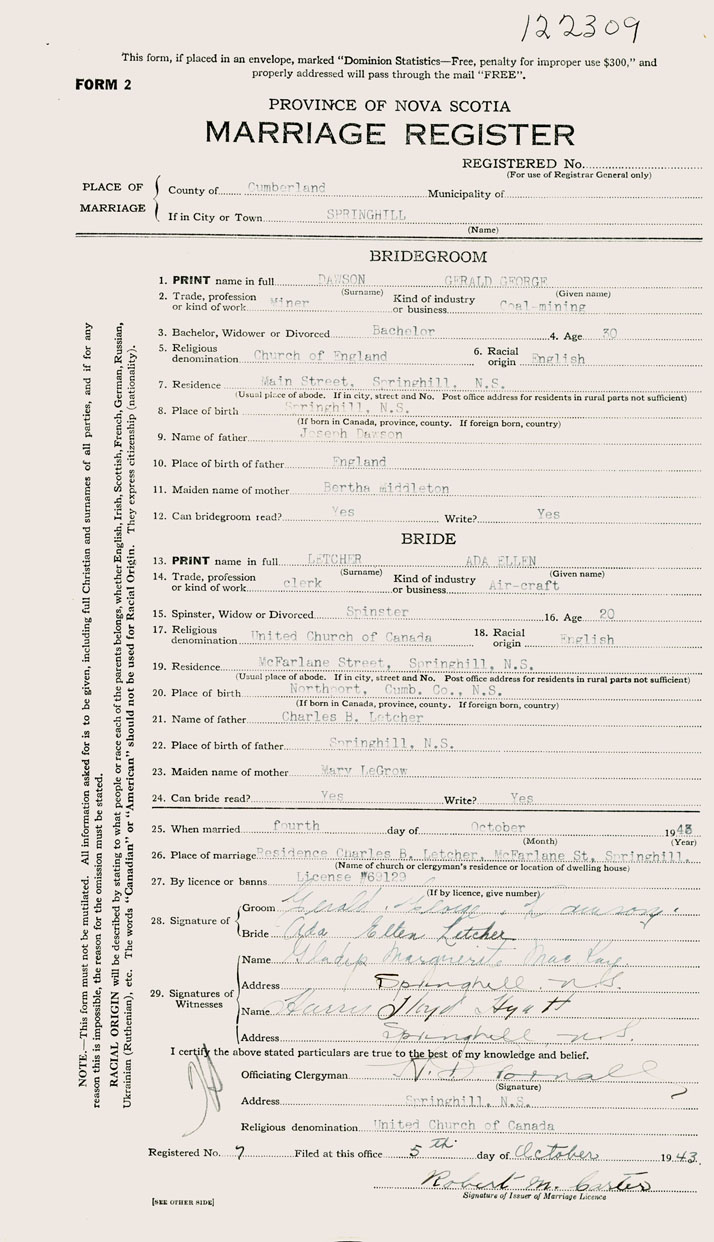 122309
This form, if placed in an envelope, marked "Dominion Statistics—Free, penalty for improper use $300," and
properly addressed will pass through the mail "FREE".
FORM 2
PROVINCE OF NOVA SCOTIA
MARRIAGE REGISTER
REGISTERED No.
(For use of Registrar General only)
PLACE OF MARRIAGE
County of Cumberland Municipality of
If in City or Town SPRINGHILL
(Name)
BRIDEGROOM
1. PRINT name in full DAWSON GERALD GEORGE
(Surname) (Given name)
2. Trade, profession or kind of work Miner Kind of industry or business Coal-mining
3. Bachelor, Widower or Divorced Bachelor 4. Age 30
5. Religious denomination Church of England 6. Racial origin English
7. Residence Main Street, Springhill, N.S.
(Usual place of abode. If in city, street and No. Post office address for residents in rural parts not sufficient)
8. Place of birth Springhill, N.S.
(If born in Canada, province, county. If foreign born, country)
9. Name of father Joseph Dawson
10. Place of birth of father England
11. Maiden name of mother Bertha Middleton
12. Can bridegroom read? Yes Write? Yes
BRIDE
13. PRINT name in full LETCHER ADA ELLEN
(Surname) (Given name)
14. Trade, profession or kind of work clerk Kind of industry or business Air-craft
15. Spinster, Widow or Divorced Spinster 16. Age 20
17. Religious denomination United Church of Canada 18. Racial origin English
19. Residence McFarlane Street, Springhill, N.S.
(Usual place of abode. If in city, street and No. Post office address for residents in rural parts not sufficient)
20. Place of birth Northport, Cumb. Co., N.S.
(If born in Canada, province, county. If foreign born, country)
21. Name of father Charles B. Letcher
22. Place of birth of father Springhill, N.S.
23. Maiden name of mother Mary LeGrow
24. Can bride read? Yes Write? Yes
25. When married fourth day of October 1943
(Month) (Year)
26. Place of marriage Residence Charles B. Letcher, McFarlane St, Springhill.
(Name of church or clergyman's residence or location of dwelling house)
27. By licence or banns License #69129
(If by licence, give number)
28. Signature of
Groom Gerald George Dawson
Bride Ada Ellen Letcher
29. Signatures of Witnesses
Name Gladys Marguerite MacKay
Address Springhill, N.S.
Name Harris Lloyd Hyatt
Address Springhill, N.S.
I certify the above stated particulars are true to the best of my knowledge and belief.
Officiating Clergyman
(Signature)
Address Springhill, N.S.
Religious denomination United Church of Canada
Registered No. 7 Filed at this office 5th day of October 1943.
Robert M. Carter
Signature of Issuer of Marriage Licence
[SEE OTHER SIDE]
NOTE.—This form must not be mutilated. All information asked for is to be given, including full Christian and surnames of all parties, and if for any
reason this is impossible, the reason for the omission must be stated.
RACIAL ORIGIN will be described by stating to what people or race each of the parents belongs, whether English, Irish, Scottish, French, German, Russian,
Ukrainian (Ruthenian), etc. The words "Canadian" or "American" should not be used for Racial Origin. They express citizenship (nationality).